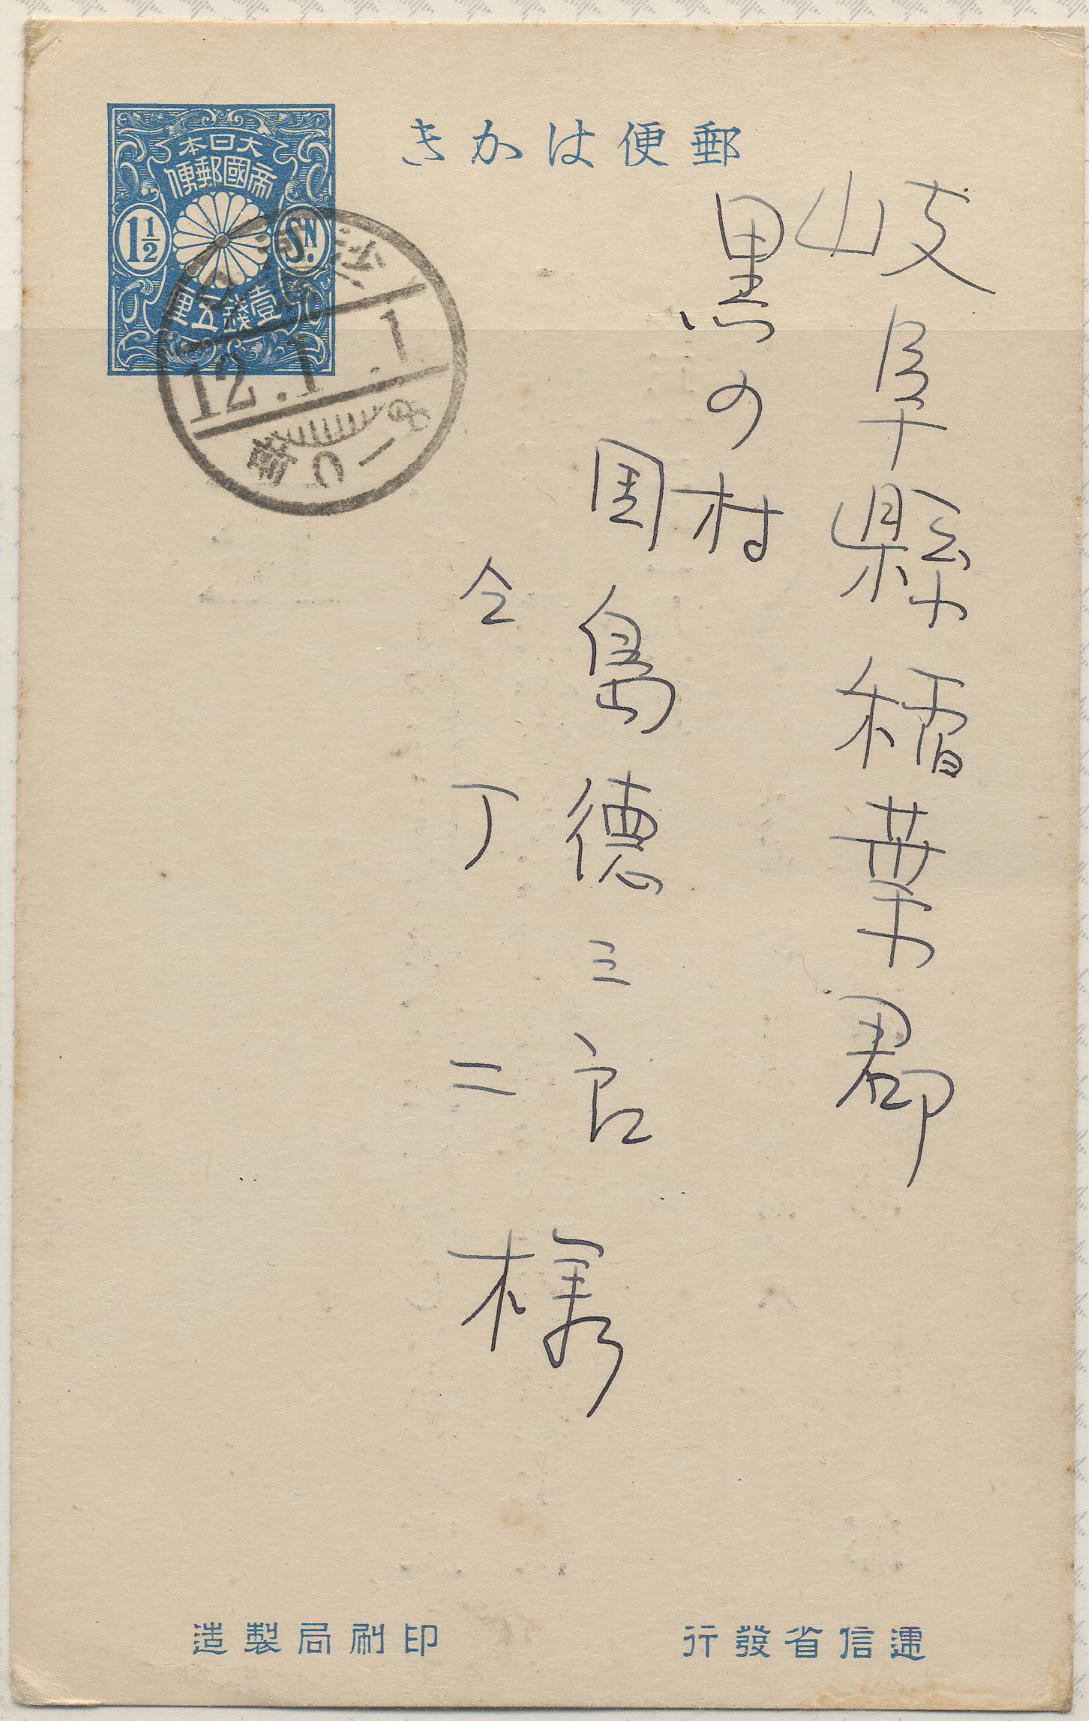 郵便はかき
大日本
帝國郵便
1½
SN.
壹錢五厘
12.1.1
后0-8
岐阜縣稲葉郡
黒の村
国島徳三郎
仝丁二様
遞信省發行
印刷局製造